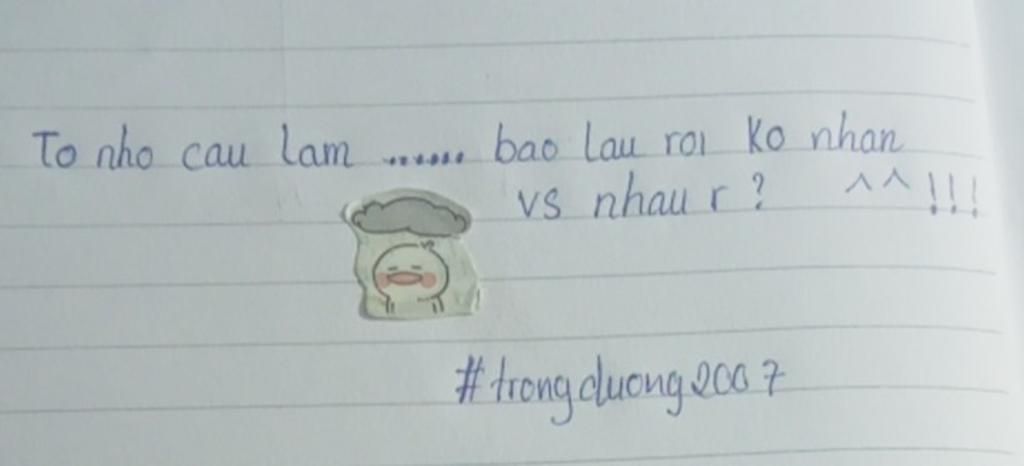 To nho cau lam ....... bao lau roi ko nhan
vs nhau r ? ^^ !!!
#trongduong2007